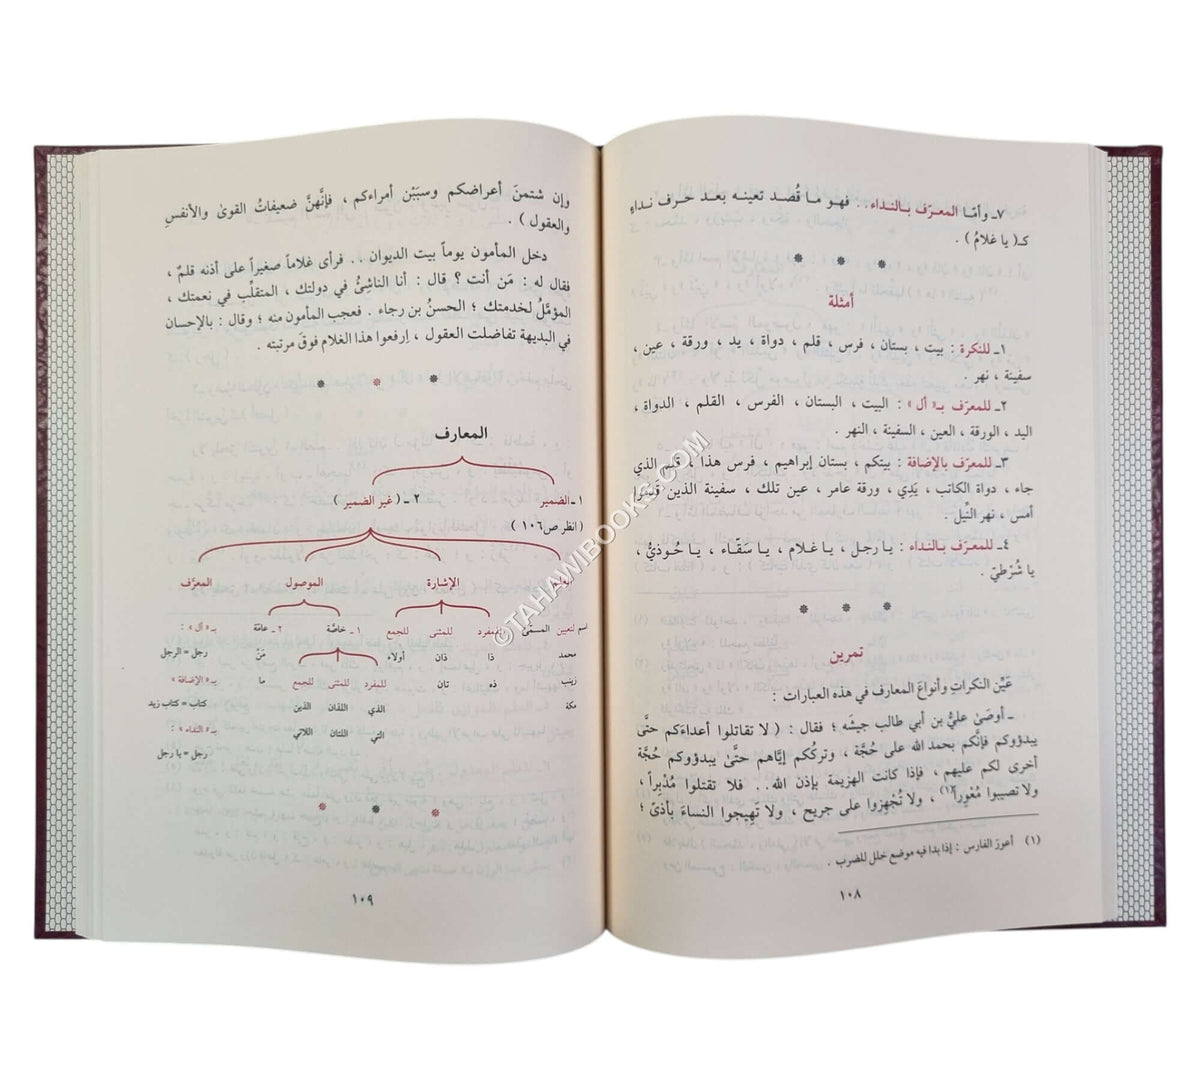 ٧ـ وأمّا المعرّف بالنداء.. : فهو ما قُصد تعينه بعد حرف نداءٍ
كـ( يا غلامُ ) .
أمثلة
١ـ للنكرة : بيت ، بستان ، فرس ، قلم ، دواة ، يد ، ورقة ، عين ،
سفينة ، نهر .
٢ـ للمعرّف بـ« أل » : البيت ، البستان ، الفرس ، القلم ، الدواة ،
اليد ، الورقة ، العين ، السفينة ، النهر .
٣ـ للمعرّف بالإضافة : بيتكم ، بستان إبراهيم ، فرس هذا ، قلم الذي
جاء ، دواة الكاتب ، يَدِي ، ورقة عامر ، عين تلك ، سفينة الذين قدموا
أمس ، نهر النِّيل .
٤ـ للمعرّف بالنداء : يا رجل ، يا غلام ، يا سقّاء ، يا حُوذيُّ ،
يا شُرْطيّ .
تمرين
عَيِّن النكراتِ وأنواعَ المعارف في هذه العبارات :
ـ أوصَىٰ عليُّ بن أبي طالب جيشَه ؛ فقال : ( لا تقاتلوا أعداءَكم حتَّىٰ
يبدؤوكم فإنَّكم بحمد الله على حُجَّة ، وتركُكم إيَّاهم حتَّىٰ يبدؤوكم حُجَّة
أخرى لكم عليهم ، فإذا كانت الهزيمة بإذن الله.. فلا تقتلوا مُدْبِراً ،
ولا تصيبوا مُعْوِراً(١) ، ولا تُجْهِزوا على جريح ، ولا تَهِيجوا النساءَ بأذىً ؛
(١) أعورَ الفارس : إذا بدا فيه موضع خلل للضرب .
١٠٨
وإن شتمنَ أعراضكم وسبَبْن أمراءكم ، فإنَّهنَّ ضعيفاتُ القوىٰ والأنفسِ
والعقول ) .
دخل المأمون يوماً بيت الديوان .. فرأى غلاماً صغيراً على أذنه قلمٌ ،
فقال له : مَن أنت ؟ قال : أنا الناشِئُ في دولتك ، المتقلِّب في نعمتك ،
المؤمَّلُ لخدمتك ؛ الحسنُ بن رجاء . فعجب المأمون منه ؛ وقال : بالإحسان
في البديهة تفاضلت العقول ، إرفعوا هذا الغلام فوقَ مرتبته .
المعارف
١ـ الضمير ٢ـ ( غير الضمير )
( انظر ص١٠٦ )
العلم الإشارة الموصول المعرَّف
اسم لتعيين المسمّىٰ للمفرد للمثنى للجمع ١ـ خاصَّة ٢ـ عامّة بـ« أل » :
محمد ذا ذان أولاء مَنْ رجل = الرجل
زينب ذه تان للمفرد للمثنى للجمع ما بـ« الإضافة »
مكة الذي اللذان الذين كتاب = كتاب زيد
التي اللتان اللاتي بـ« النداء » :
رجل = يا رجل
١٠٩
©TAHAWIBOOKS.COM